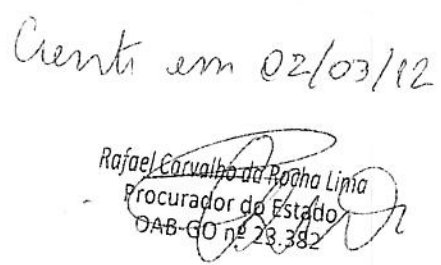 Ciente em 02/03/12
Rafael Carvalho da Rocha Lima
Procurador do Estado
OAB-GO nº 23.382